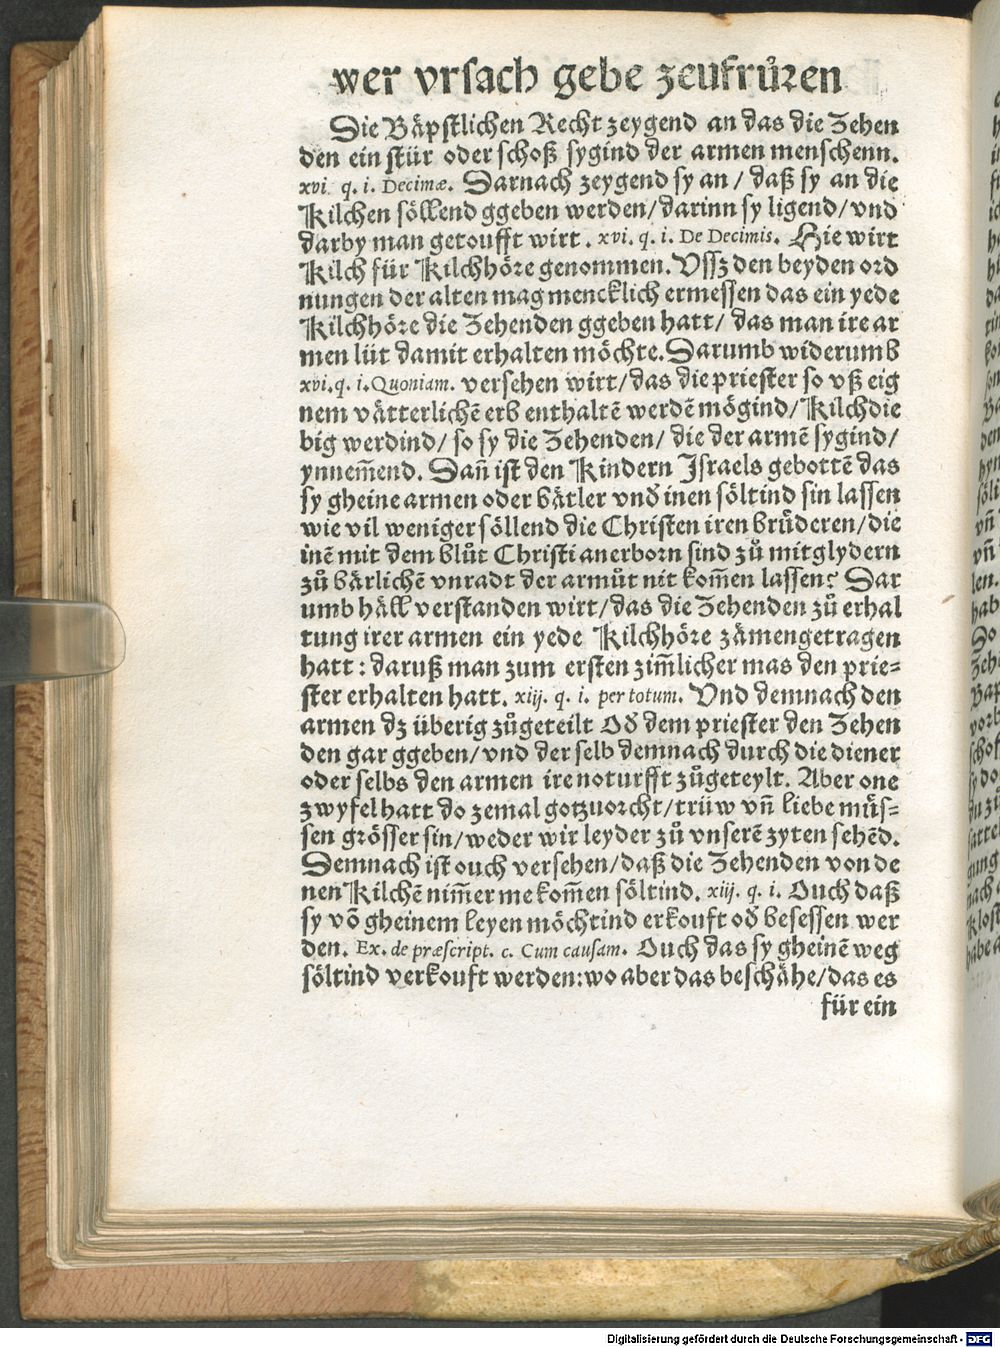 wer vrsach gebe zeufrůren
Die Bäpstlichen Recht zeygend an das die Zehen
den ein stür oder schoß sygind der armen menschenn.
xvi. q. i. Decimæ. Darnach zeygend sy an / daß sy an die
Kilchen söllend ggeben werden/ darinn sy ligend/ vnd
darby man getoufft wirt. xvi. q. i. De Decimis. Hie wirt
Kilch für Kilchhöre genommen. Vssz den beyden ord
nungen der alten mag mencklich ermessen das ein yede
Kilchhöre die Zehenden ggeben hatt/ das man ire ar
men lüt damit erhalten möchte. Darumb widerumb
xvi. q. i. Quoniam. versehen wirt/ das die priester so vß eig
nem vätterlichē erb enthaltē werdē mögind/ Kilchdie
big werdind/ so sy die Zehenden/ die der armē sygind/
ynnem̄end. Dañ ist den Kindern Israels gebottē das
sy gheine armen oder bätler vnd inen söltind sin lassen
wie vil weniger söllend die Christen iren brůderen/ die
inē mit dem blůt Christi anerborn sind zů mitglydern
zů bärlichē vnradt der armůt nit kom̄en lassen? Dar
umb häll verstanden wirt/ das die Zehenden zů erhal
tung irer armen ein yede Kilchhöre zämengetragen
hatt : daruß man zum ersten zim̄licher mas den prie=
ster erhalten hatt. xiij. q. i. per totum. Vnd demnach den
armen dz überig zůgeteilt Od dem priester den Zehen
den gar ggeben/ vnd der selb demnach durch die diener
oder selbs den armen ire noturfft zůgeteylt. Aber one
zwyfel hatt do zemal gotzuorcht/ trüw vñ liebe müs=
sen grösser sin/ weder wir leyder zů vnserē zyten sehēd.
Demnach ist ouch versehen/ daß die Zehenden von de
nen Kilchē nim̄er me kom̄en söltind. xiij. q. i. Ouch daß
sy vō gheinem leyen möchtind erkouft od besessen wer
den. Ex. de præscript. c. Cum causam. Ouch das sy gheinē weg
söltind verkouft werden: wo aber das beschähe/ das es
für ein
Digitalisierung gefördert durch die Deutsche Forschungsgemeinschaft - DFG